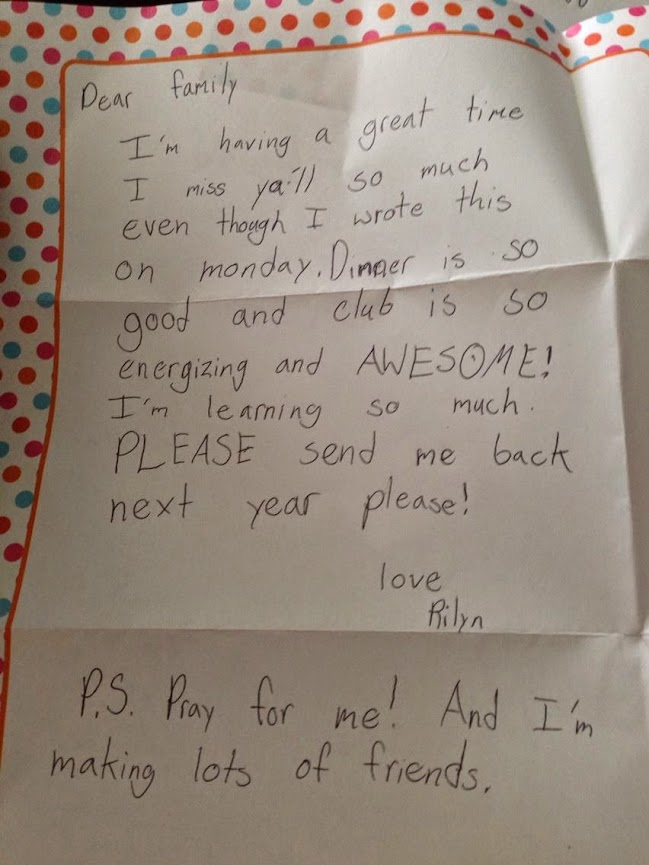 Dear family
I'm having a great time
I miss ya'll so much
even though I wrote this
on monday. Dinner is so
good and club is so
energizing and AWESOME!
I'm learning so much.
PLEASE send me back
next year please!
love
Rilyn
P.S. Pray for me! And I'm
making lots of friends.